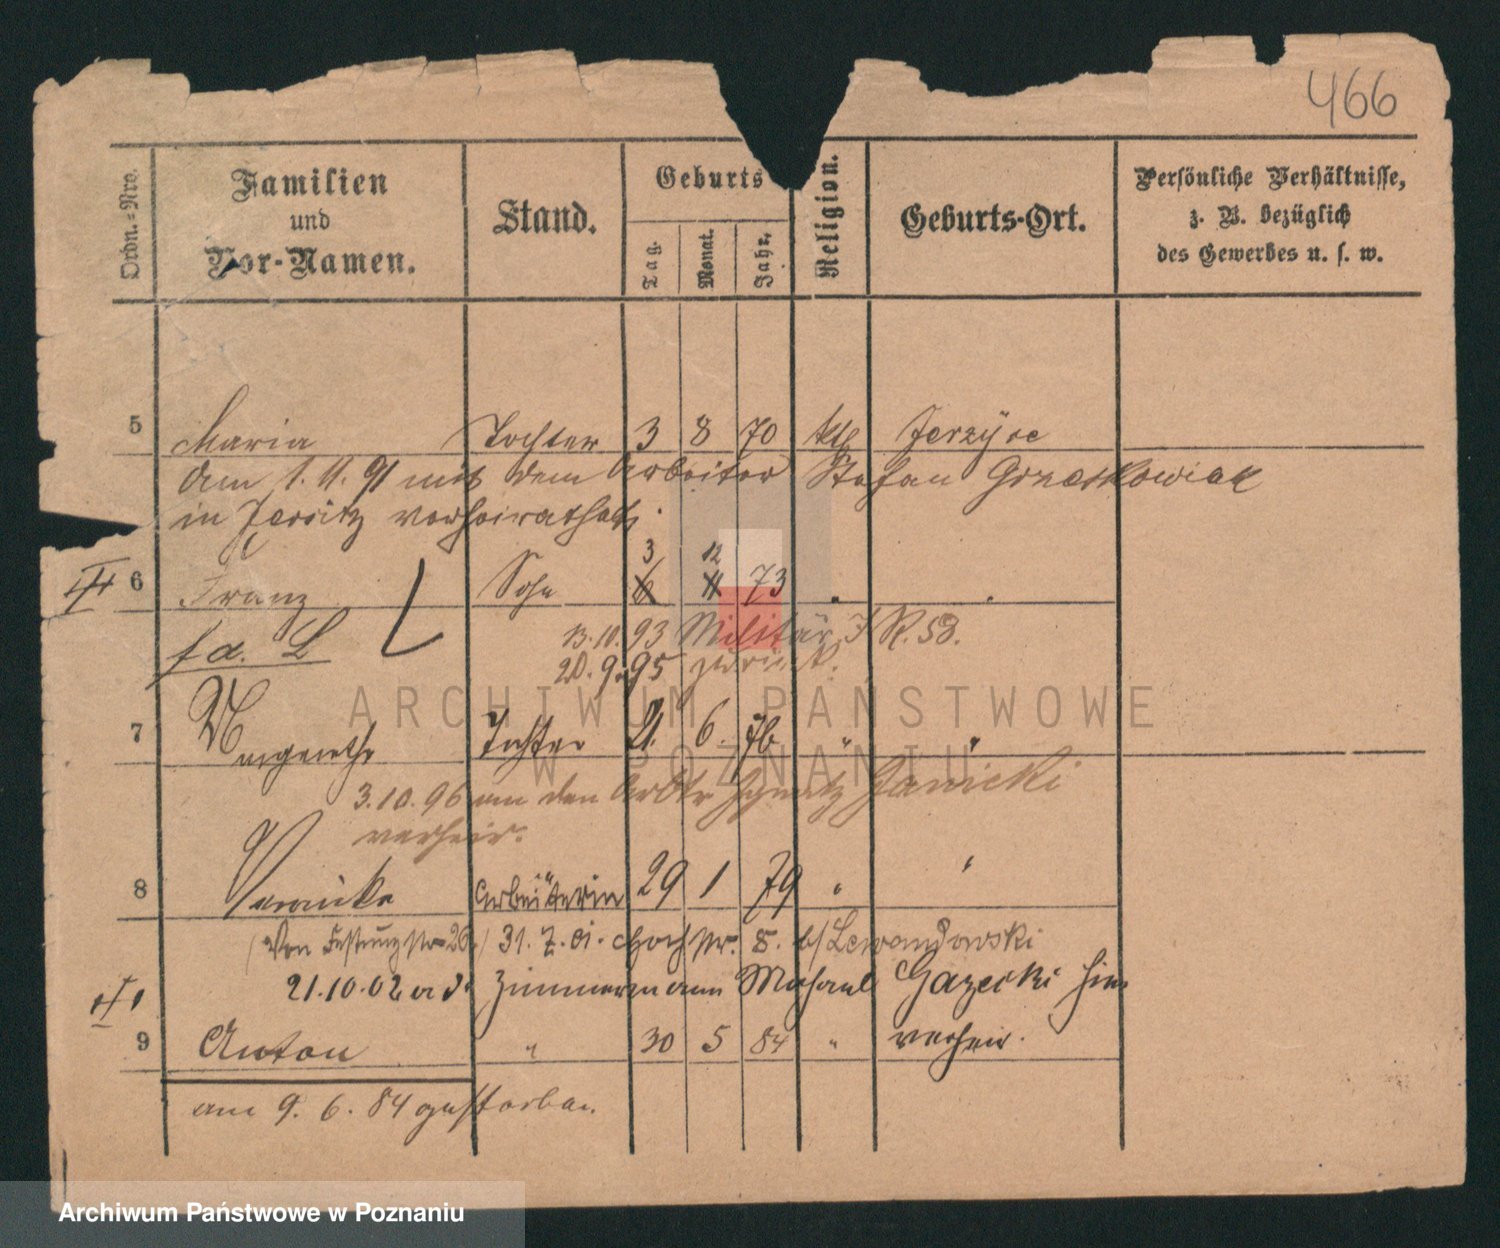 466
Ordn.-Nro.
Familien
und
Vor-Namen.
Stand.
Geburts
Tag.
Monat.
Jahr.
Religion.
Geburts-Ort.
Persönliche Verhältnisse,
z. B. bezüglich
des Gewerbes u. s. w.
5 Maria Tochter 3 8 70 kth Jerzyce
Am 1. 11. 91 mit dem Arbeiter Stefan Grzeskowiak
in Jersitz verheirathet.
3 12
6 Franz Sohn 6 11 73 "
fd. L 13.10.93 Militär J. R. 58.
20.9.95 zurück.
7 Margarethe Tochter 21. 6. 76 " "
3.10.96 an den Arbtr Ignatz Janicki
verheir.
8 Veronika Arbeiterin 29 1 79 " "
(Von Festungstr 26.) 31.7.01. Hochstr. 8. b/ Lewandowski
21.10.02 a d. Zimmermann Michael Gazecki hier
verheir.
9 Anton " 30 5 84 "
am 9. 6. 84 gestorben.
ARCHIWUM PAŃSTWOWE
W POZNANIU
Archiwum Państwowe w Poznaniu